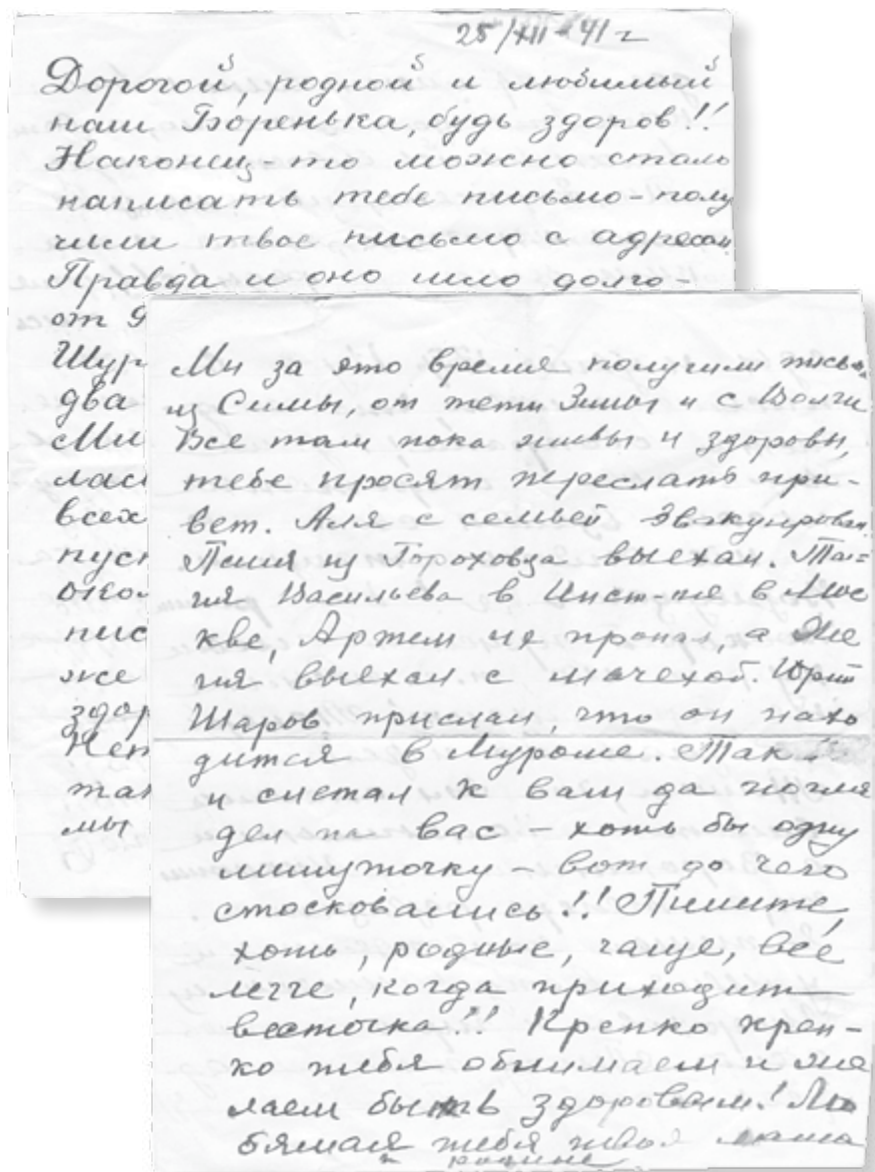 25/XII-41 г
Дорогой, родной и любимый
наш Боренька, будь здоров!!
Наконец-то можно стало
написать тебе письмо - полу
чили твое письмо с адресом.
Правда и оно шло долго -
от 9
Шур
два
Ми
лас
всех
пуст
окол
пис
же
здор
Нет
так
мы
Мы за это время получили письм
из Симы, от тети Зины и с Волги
Все там пока живы и здоровы,
тебе просят переслать при-
вет. Аля с семьей эвакуирован
из Гороховца выехал.
Васильева в Инст-те в Мос
кве, Артем их пропал, а Же
ня выехал с мачехой. Юрий
Шаров прислал, что он нахо
дится в Муроме. Так
и слетал к вам да погля
дел на вас - хоть бы одну
минуточку - вот до чего
стосковались!! Пишите,
хоть, родные, чаще, всё
легче, когда приходит
весточка!! Крепко креп-
ко тебя обнимаем и же
лаем быть здоровым! Лю
бящая тебя твоя мама
и родные